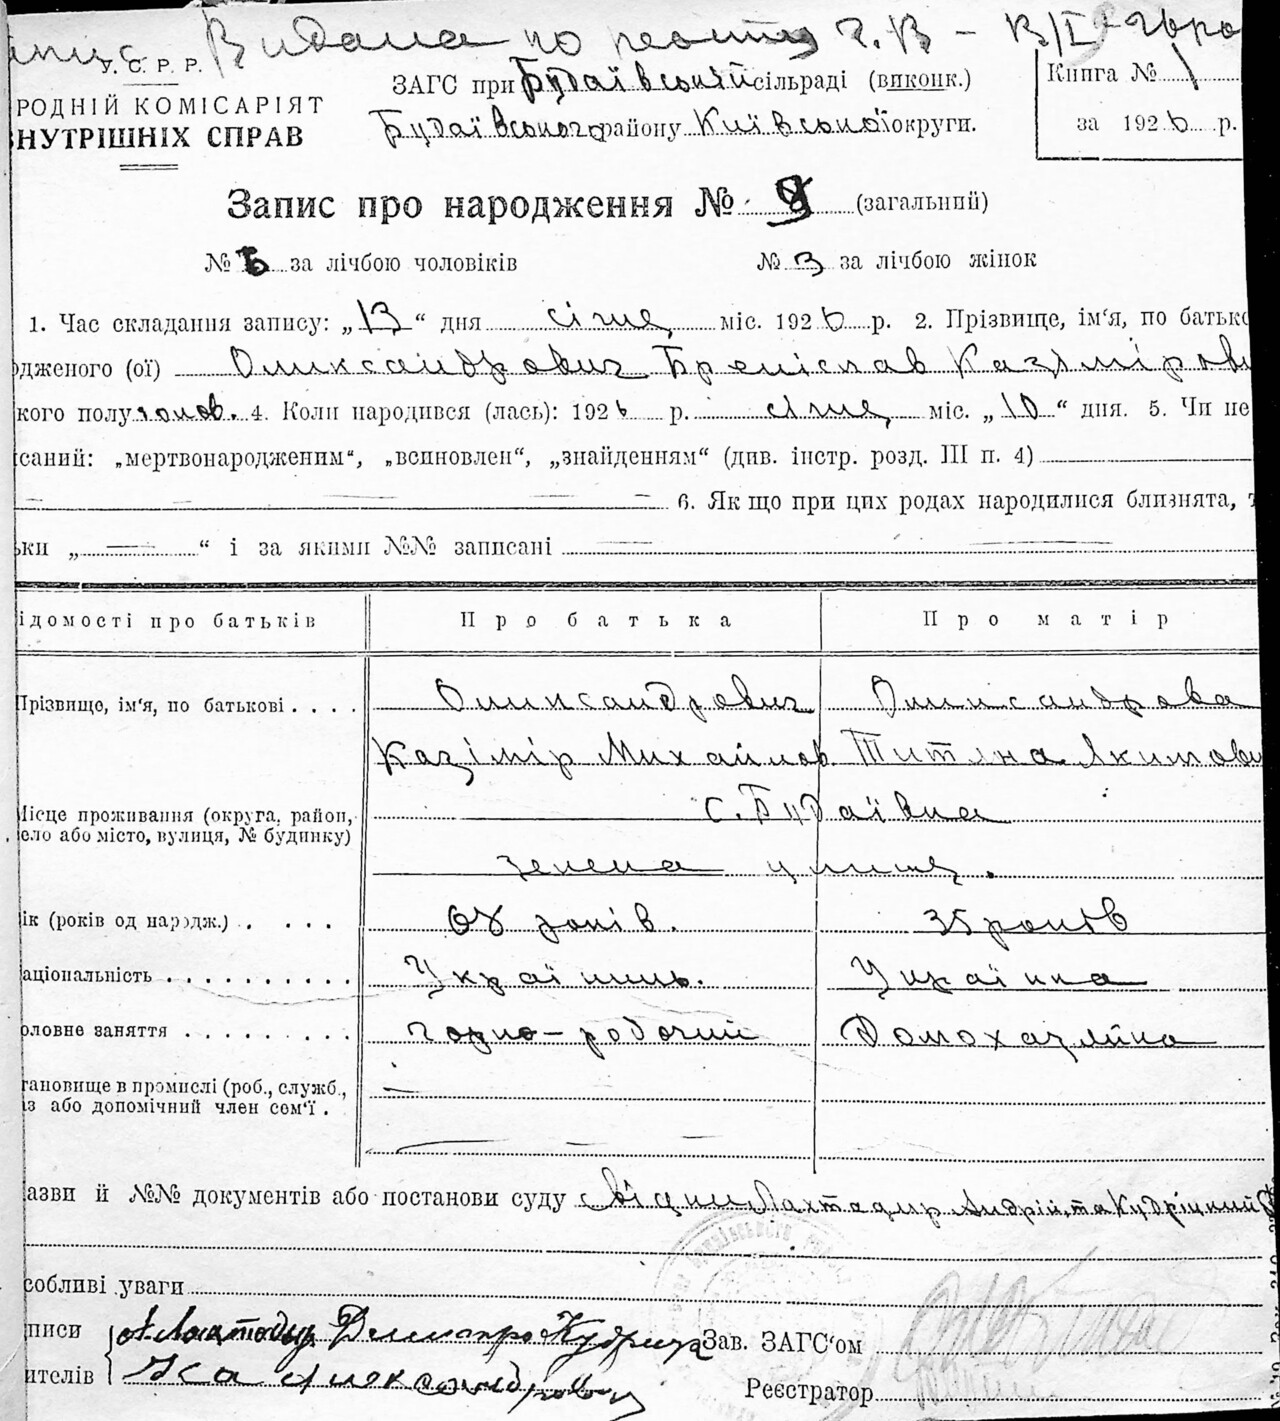 Видана по
У. С. Р. Р.
РОДНІЙ КОМІСАРІЯТ
ВНУТРІШНІХ СПРАВ
ЗАГС при Будаївській сільраді (виконк.)
Будаївського району Київської округи.
Книга № 1
за 1926 р.
Запис про народження № 9 (загальний)
№ 6 за лічбою чоловіків № 3 за лічбою жінок
1. Час складання запису: „13“ дня січня міс. 1926 р. 2. Прізвище, ім‘я, по батько
одженого (ої) Оликсандрович Броніслав Казімірови
кого полу чолов. 4. Коли народився (лась): 1926 р. січня міс. „10“ дня. 5. Чи не
саний: „мертвонародженим“, „всиновлен“, „знайденням“ (див. інстр. розд. III п. 4)
6. Як що при цих родах народилися близнята, т
ьки „ “ і за якими №№ записані
ідомості про батьків Про батька Про матір
Прізвище, ім‘я, по батькові . . . . Оликсандрович Оликсандрова
Казімір Михайлов. Титяна Якимовн
Місце проживання (округа, район,
ело або місто, вулиця, № будинку)
с. Будаївка
зелена улиця.
ік (років од народж.) . . . . 68 років. 35 років
аціональність . . . . . . . . . . Українець. Українка
оловне заняття . . . . . . . . . чорно-робочий Домохазяйка
тановище в промислі (роб., служб.,
із або допомічний член сем‘ї .
азви й №№ документів або постанови суду свідки Лахтадир Андрій, та Кудріцкий
собливі уваги
писи А Лахтадир Кудрицк Зав. ЗАГС‘ом
ителів Александрович Реєстратор